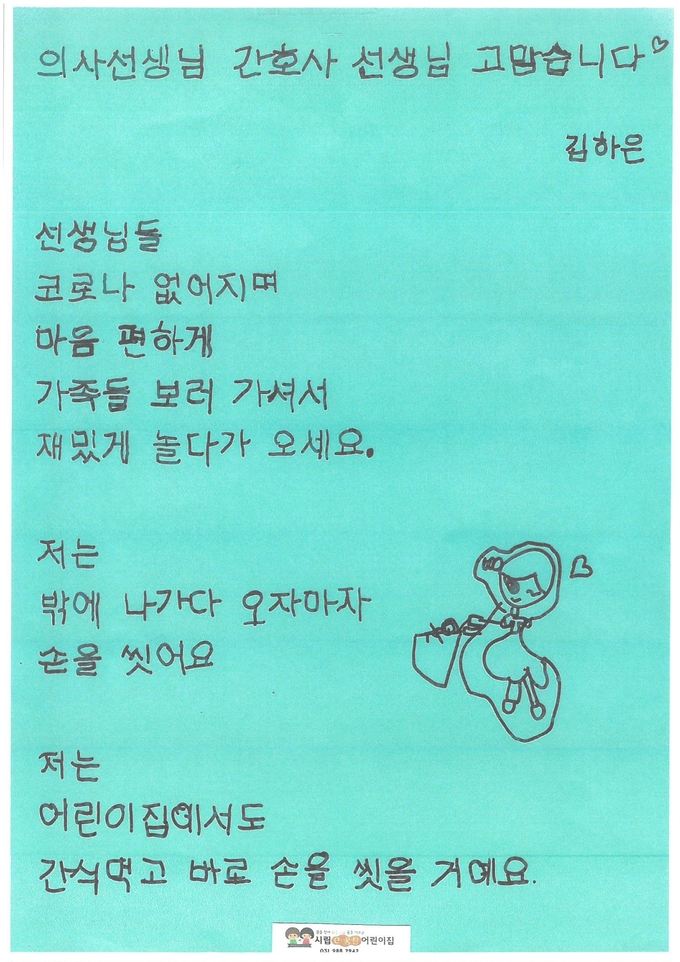 의사선생님 간호사 선생님 고맙습니다
김하은
선생님들
코로나 없어지며
마음 편하게
가족들 보러 가셔서
재밌게 놀다가 오세요.
저는
밖에 나가다 오자마자
손을 씻어요
저는
어린이집에서도
간식먹고 바로 손을 씻을 거예요.
시립 어린이집